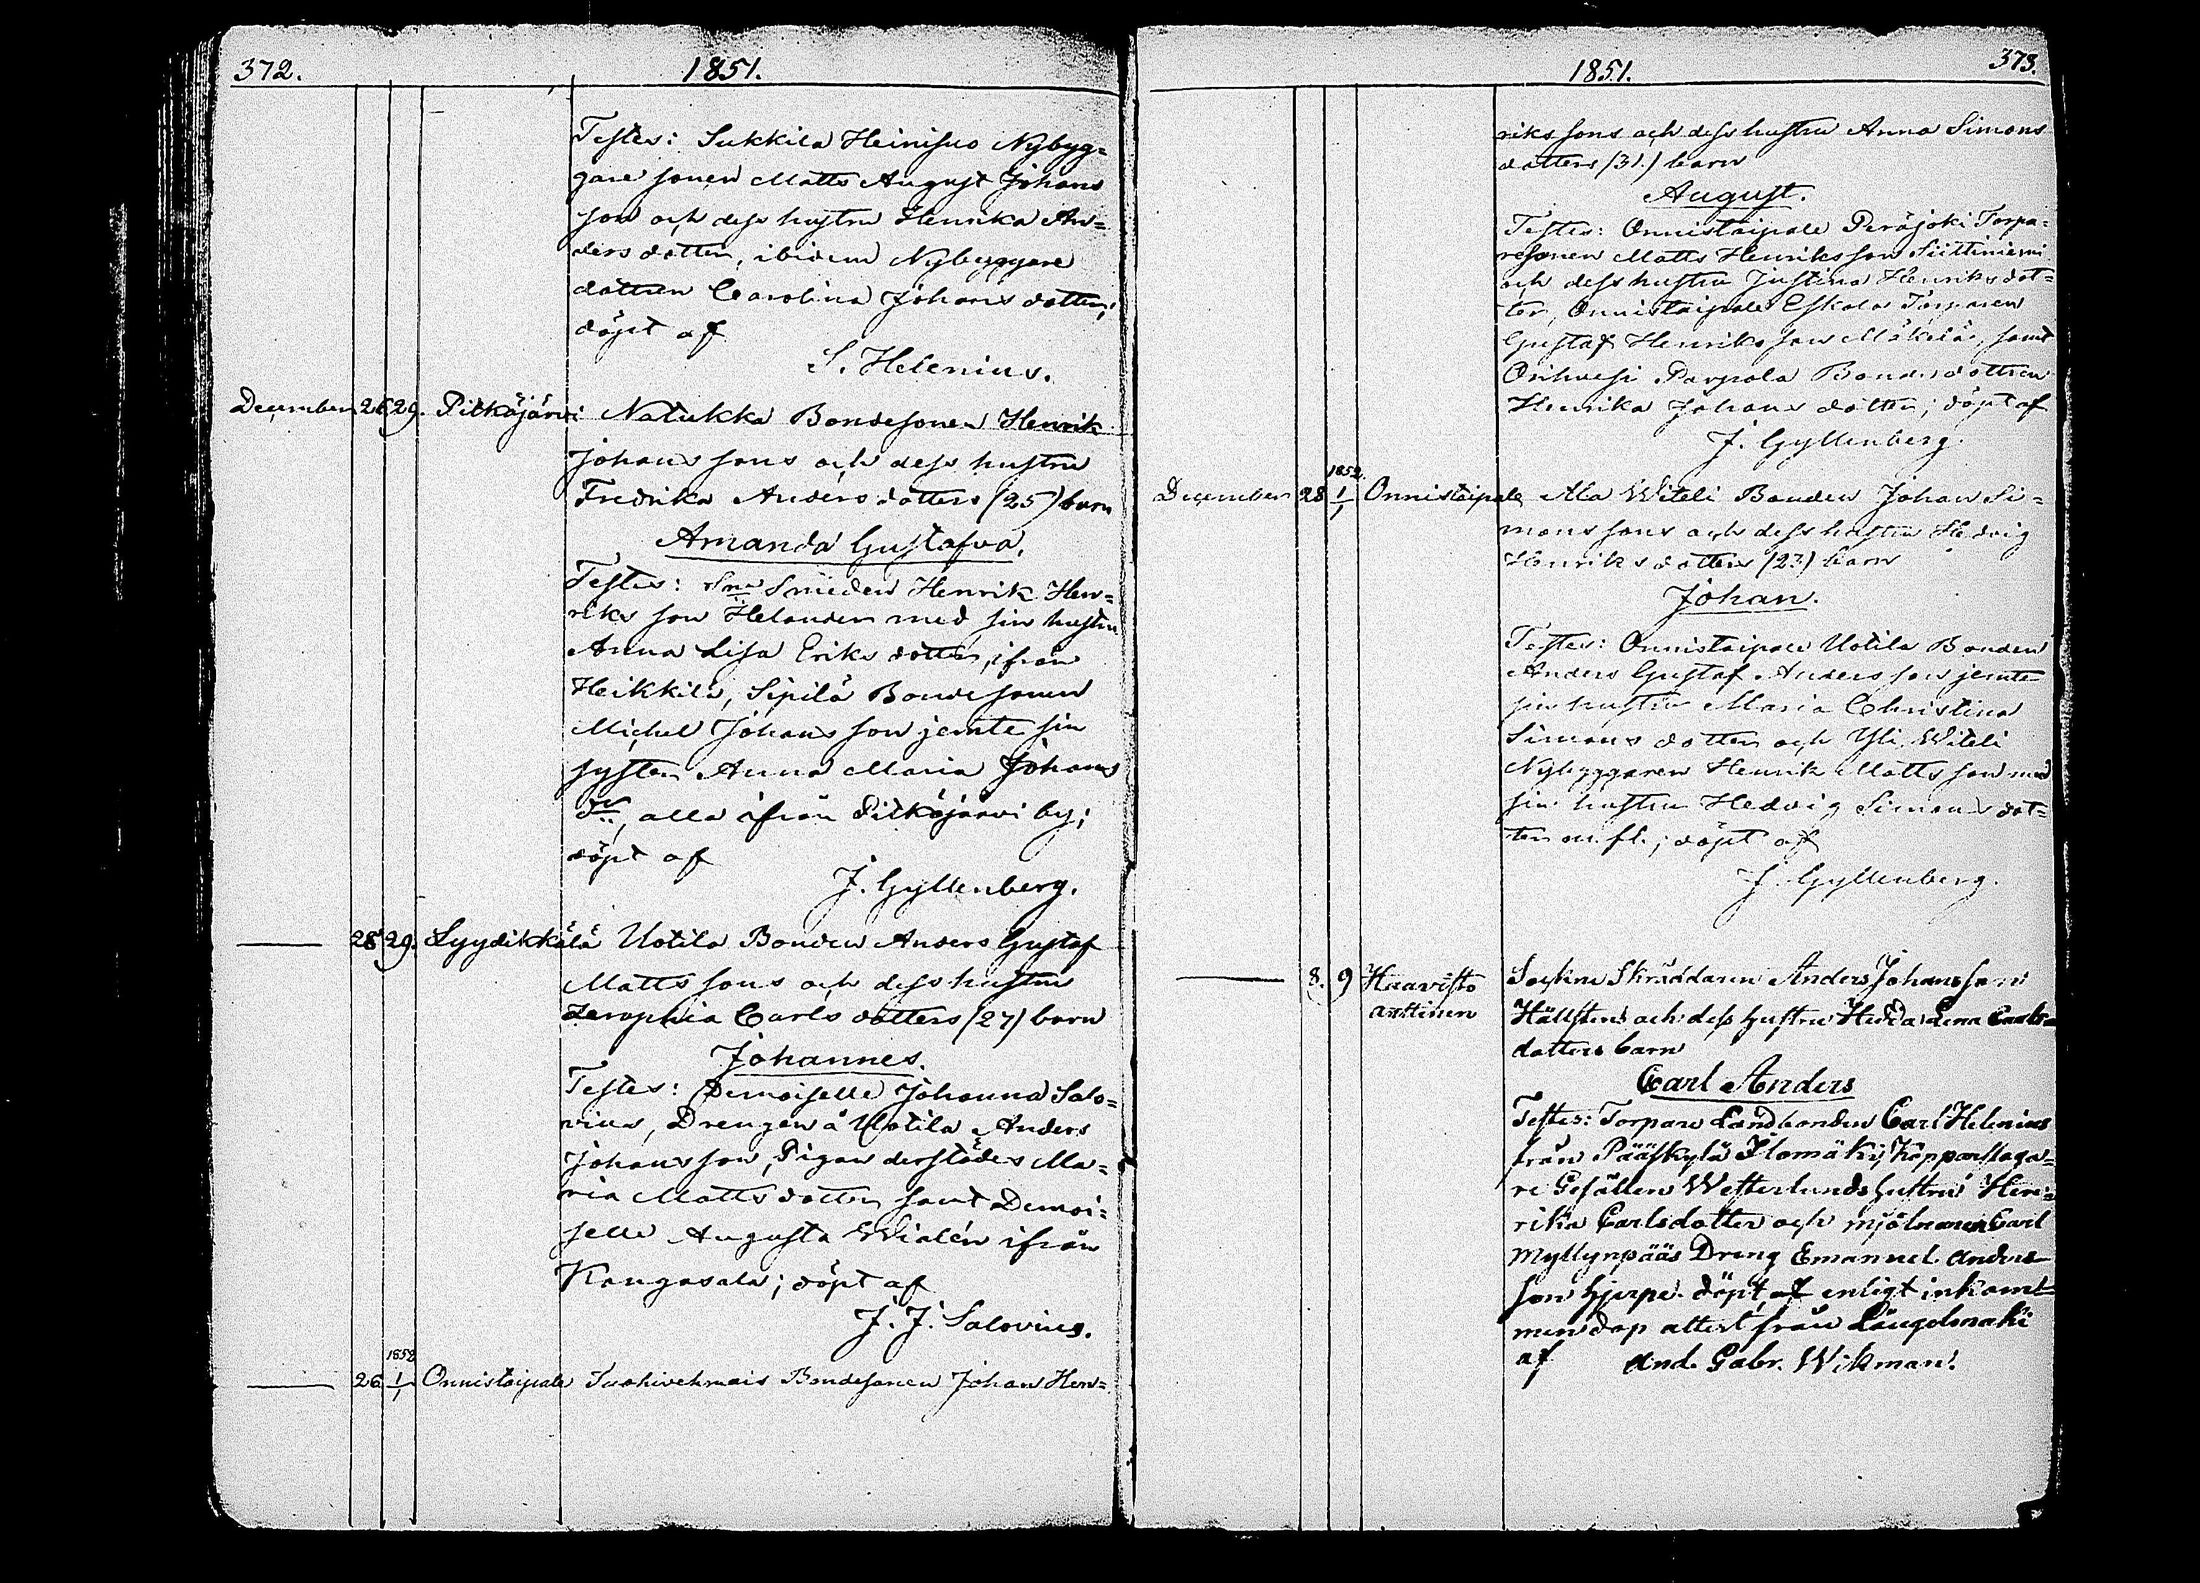 372.
1851.
Testes: Sukkila Heinisuo Nybyg=
gare sonen Matts August Johans
son och dess hustru Henrika An=
ders dotter, ibidem Nybyggare
dottren Carolina Johans dotter;
döpt af
S. Helenius.
December 26 29. Pitkäjärvi Natukka Bondesonen Henrik
Johans sons och dess hustru
Fredrika Anders dotters (25) barn
Amanda Gustafva.
Testes: Sne Smeden Henrik Hen=
riks son Helander med sin hustru
Anna Lisa Eriks dotter, ifrån
Heikkilä, Sipilä Bondesonen
Michel Johans son jemte sin
syster Anna Maria Johans
dr, alla ifrån Pitkäjärvi by;
döpt af
J. Gyllenberg.
28 29. Lyydikkälä Uotila Bonden Anders Gustaf
Matts sons och dess hustru
Seraphia Carls dotters (27) barn
Johannes.
Testes: Demoiselle Johanna Salo=
vius, Drengen å Uotila Anders
Johans son, Pigan derstädes Ma=
ria Matts dotter samt Demoi=
selle Augusta Widlén ifrån
Kangasala; döpt af
J. J. Salovius.
1852
26 1/1 Onnistaipale Tuohivehmais Bondesonen Johan Hen=
1851.
373.
riks sons och dess hustru Anna Simons
dotters (31.) barn
August.
Testes: Onnistaipale Peräjoki Torpa=
resonen Matts Henriks son Siittiniemi
och dess hustru Justina Henriks dot=
ter, Onnistaipale Eskola Torparen
Gustaf Henriks son Mäkelä, samt
Orihvesi Parpola Bondedottren
Henrika Johans dotter; döpt af
J. Gyllenberg.
1852.
December 28 1/1 Onnistaipale Ala Witeli Bonden Johan Si=
mons sons och dess hustru Hedvig
Henriks dotters (23) barn
Johan.
Testes: Onnistaipale Uotila Bonden
Anders Gustaf Anders son jemte
sin hustru Maria Christina
Simons dotter och Yli Witeli
Nybyggaren Henrik Matts son med
sin hustru Hedvig Simons dot=
ter m. fl.; döpt af
J. Gyllenberg.
8. 9 Haavisto Sockne Skräddaren Anders Johansson
anttinen Hällstens och dess hustru Hedda Lena Carls=
dotters barn
Carl Anders
Testes: Torpare Landbonden Carl Helenius
från Pääskylä Ilomäki, Kopparslaga=
re Gesällen Westerlunds hustru Hen=
rika Carlsdotter och mjölnaren Carl
Myllynpääs Dreng Emanuel Anders
son Hjerpe. döpt af enligt inkomt=
men dop attest från Längelmäki
af And. Gabr. Wikman.